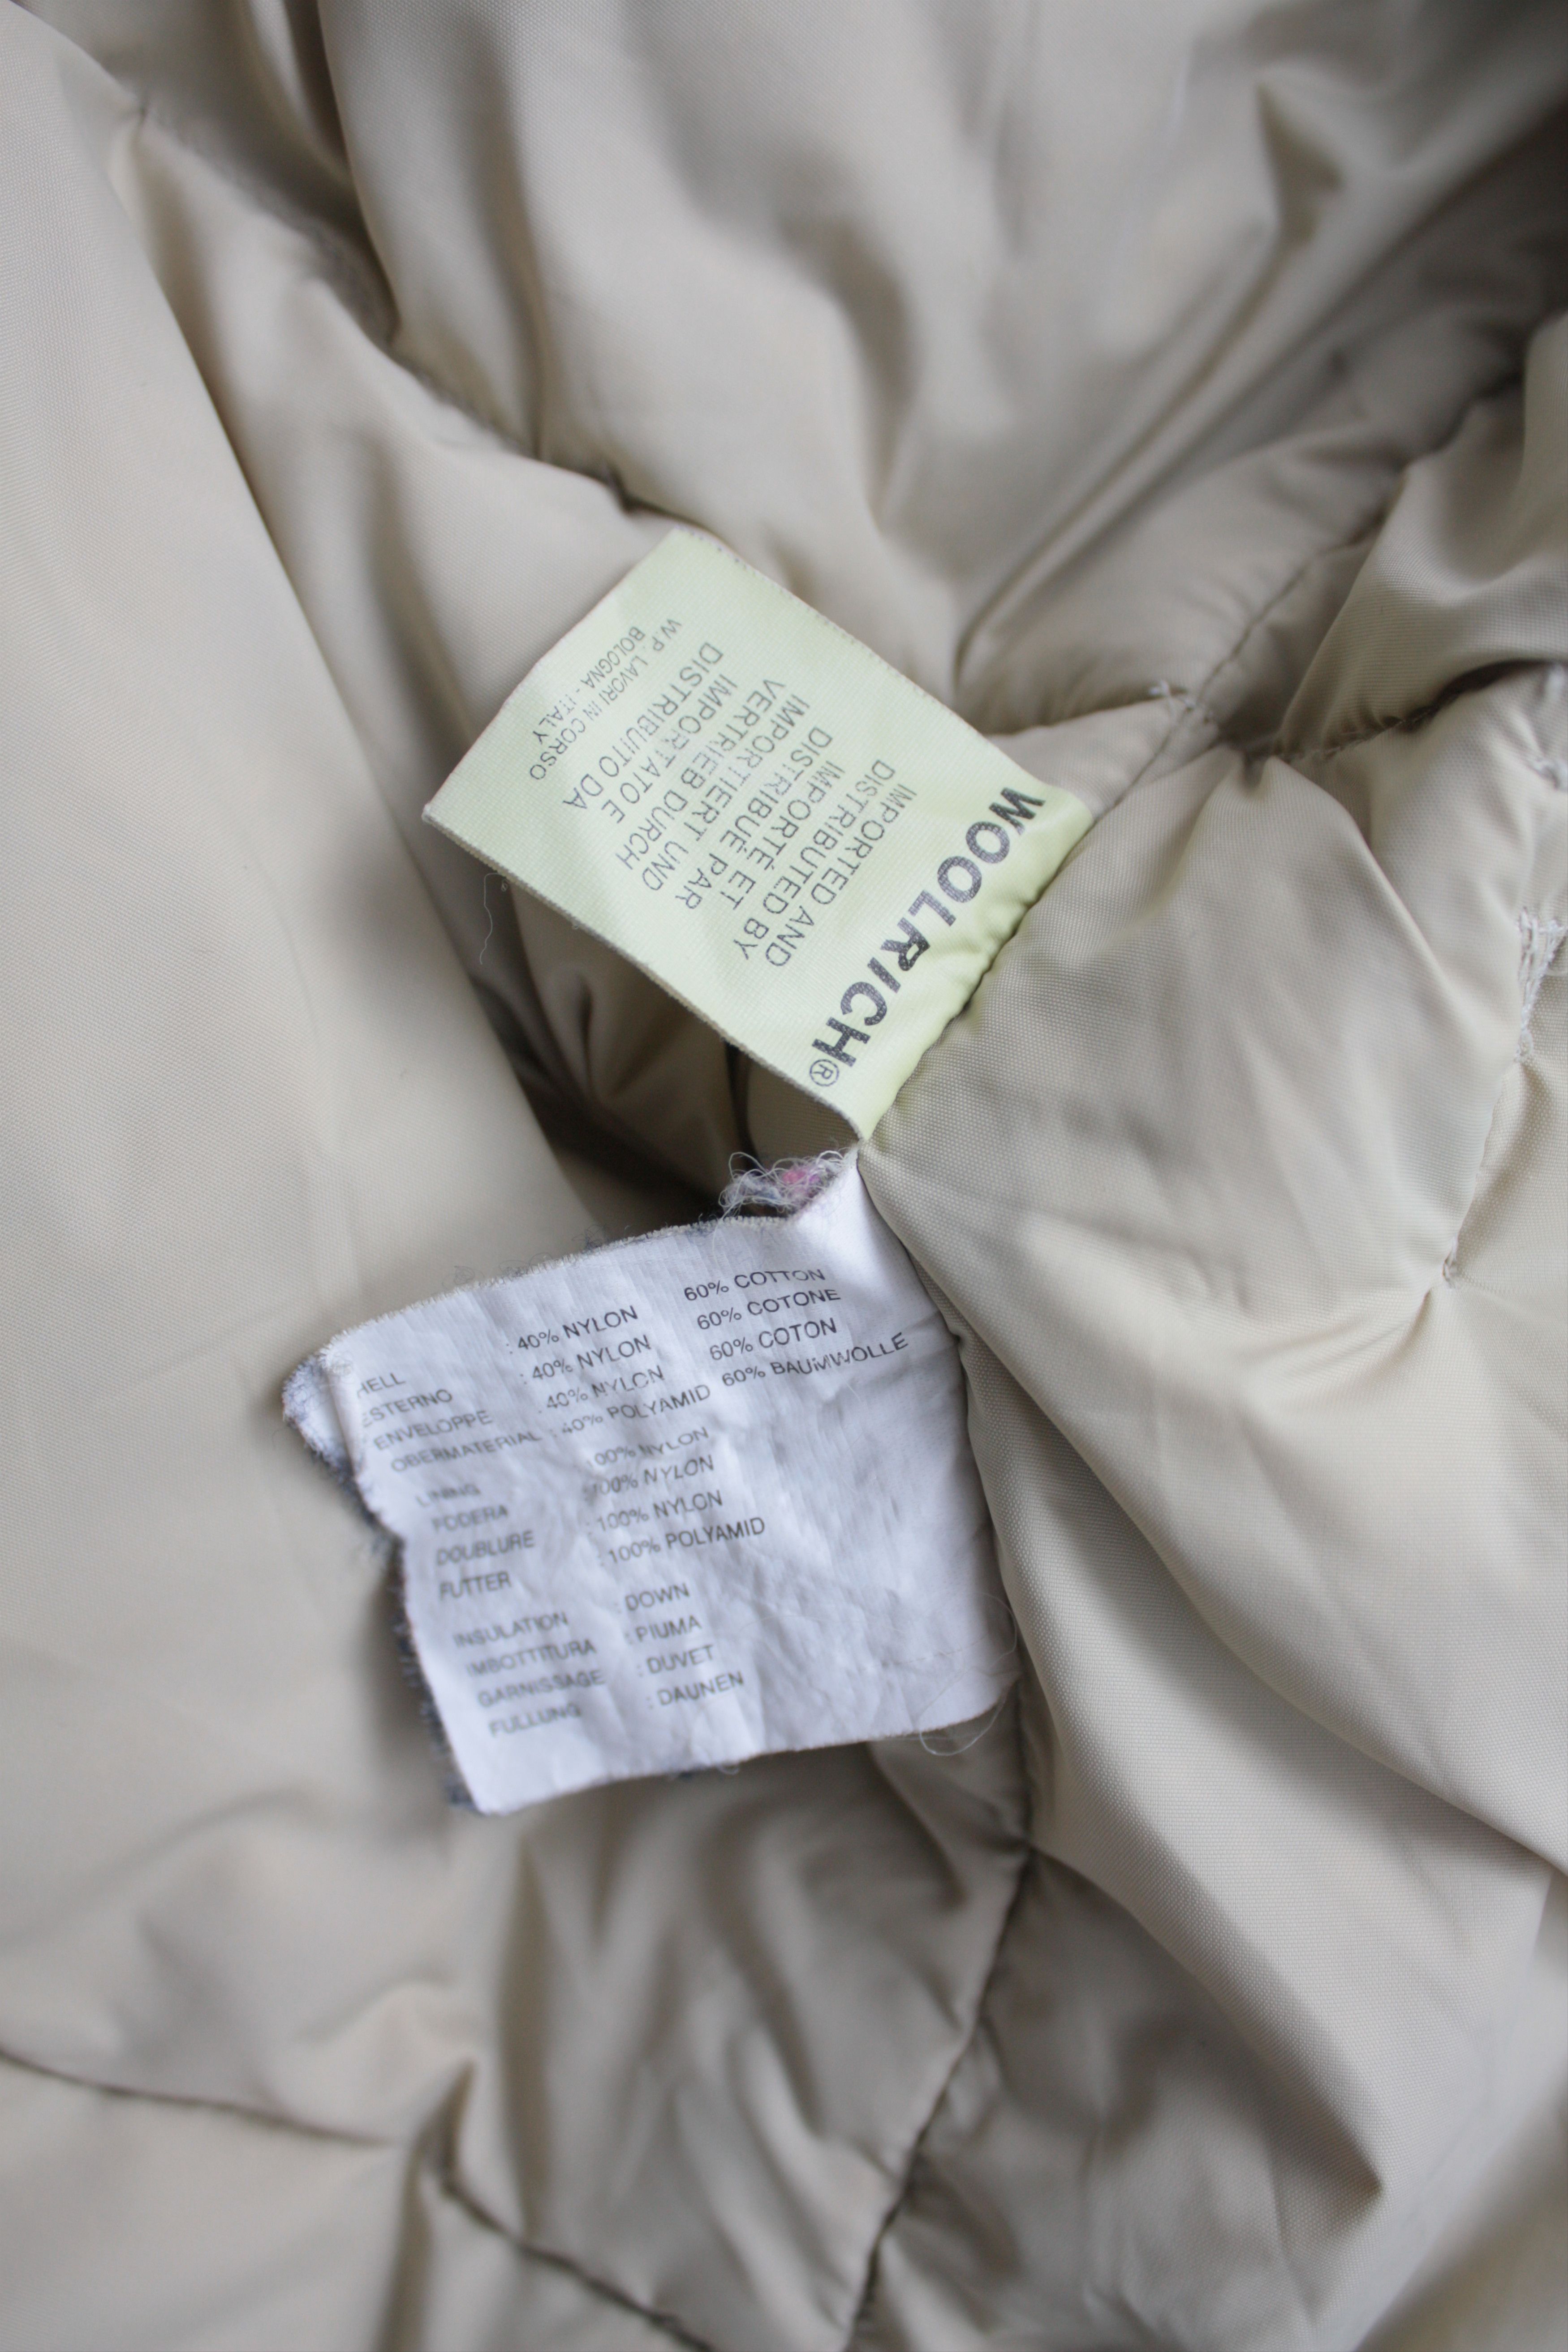 WOOLRICH®
IMPORTED AND
DISTRIBUTED BY
IMPORTÉ ET
DISTRIBUÉ PAR
IMPORTIERT UND
VERTRIEB DURCH
IMPORTATO E
DISTRIBUITO DA
W.P. LAVORI IN CORSO
BOLOGNA - ITALY
HELL : 40% NYLON 60% COTTON
ESTERNO : 40% NYLON 60% COTONE
ENVELOPPE : 40% NYLON 60% COTON
OBERMATERIAL : 40% POLYAMID 60% BAUMWOLLE
LINING : 100% NYLON
FODERA : 100% NYLON
DOUBLURE : 100% NYLON
FUTTER : 100% POLYAMID
INSULATION : DOWN
IMBOTTITURA : PIUMA
GARNISSAGE : DUVET
FULLUNG : DAUNEN